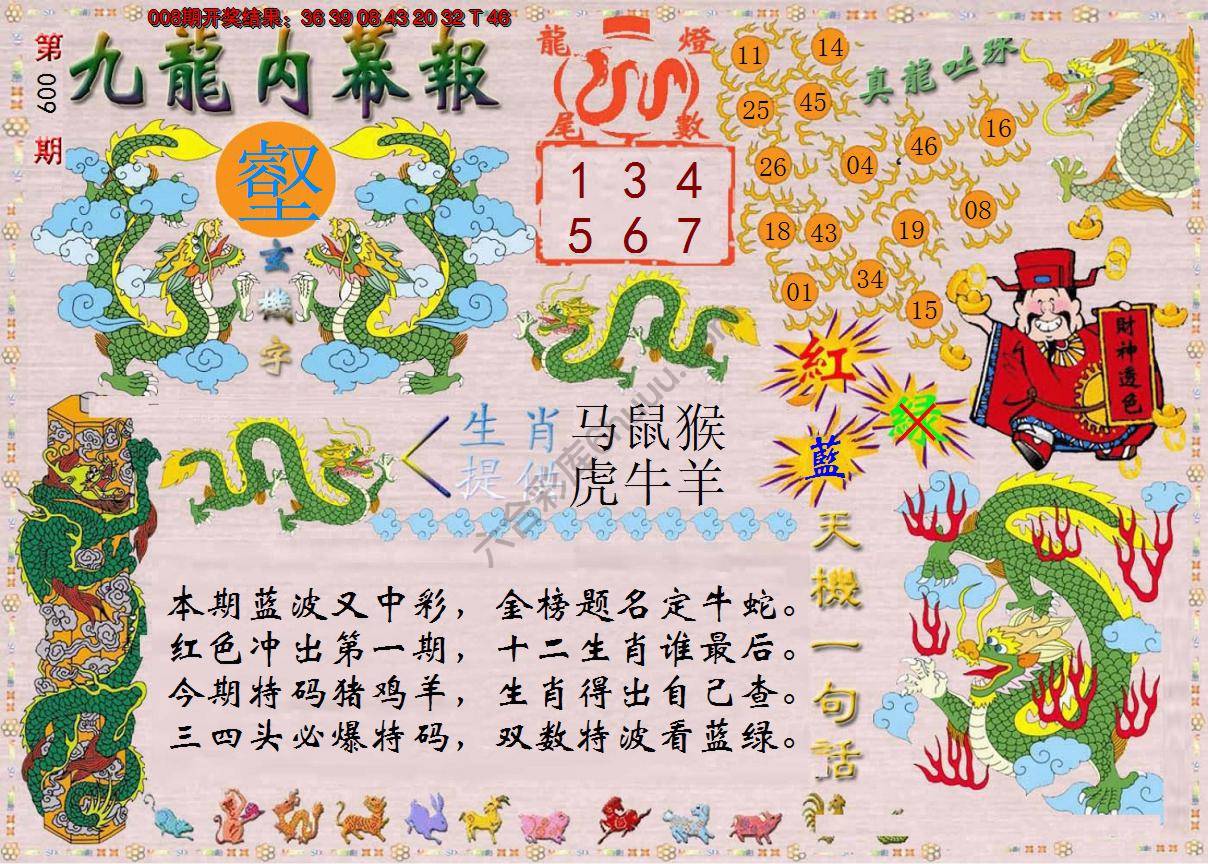 008期开奖结果：36 39 08 43 20 32 T 46
第009期
九龍内幕報
壑
玄機字
龍燈尾數
1 3 4
5 6 7
真龍吐珠
11
14
25
45
46
16
26
04
18
43
19
08
01
34
15
財神透色
紅
绿
藍
生肖 马鼠猴
提供 虎牛羊
天機一句話
本期蓝波又中彩，金榜题名定牛蛇。
红色冲出第一期，十二生肖谁最后。
今期特码猪鸡羊，生肖得出自己查。
三四头必爆特码，双数特波看蓝绿。